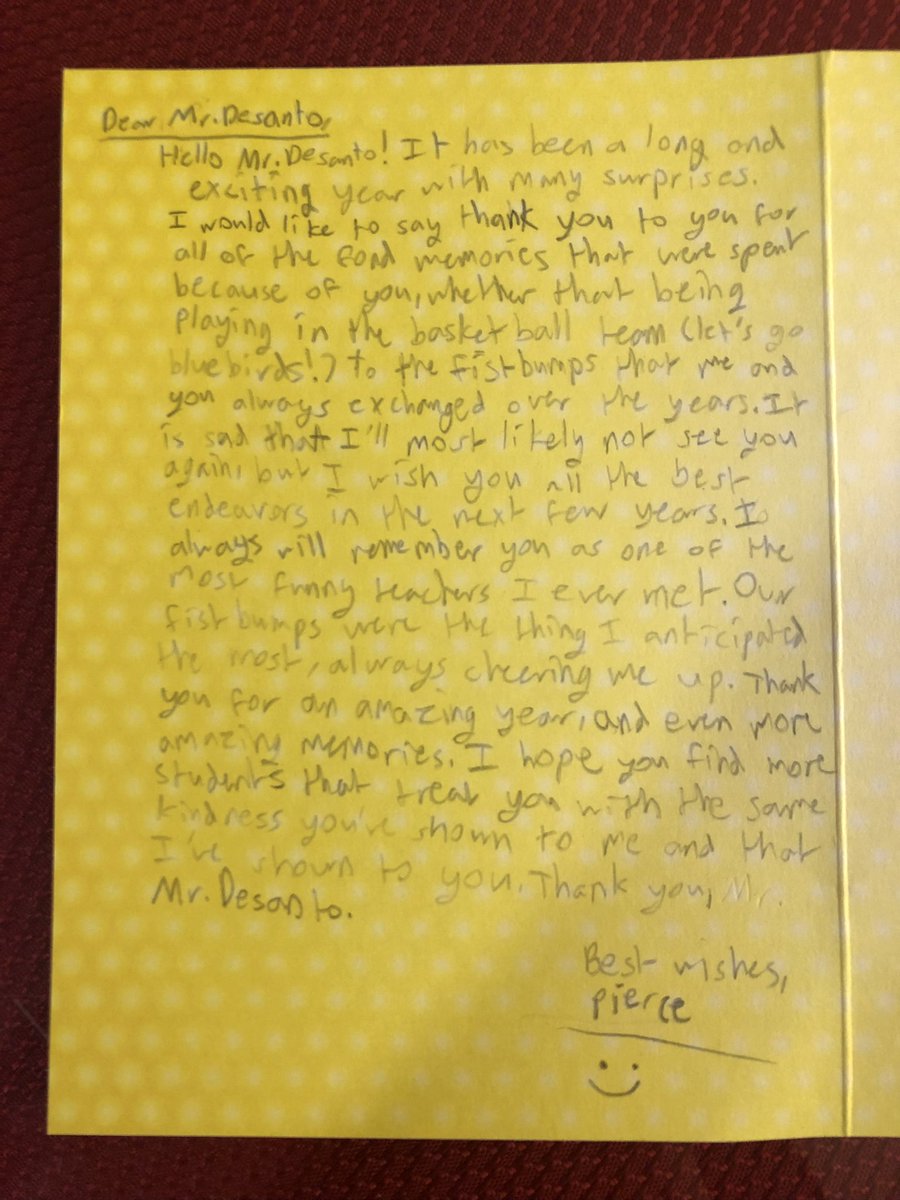 Dear Mr. Desanto,
Hello Mr. Desanto! It has been a long and
exciting year with many surprises.
I would like to say thank you to you for
all of the fond memories that were spent
because of you, whether that being
playing in the basketball team (let's go
bluebirds!) to the fistbumps that me and
you always exchanged over the years. It
is sad that I'll most likely not see you
again, but I wish you all the best
endeavors in the next few years. I
always will remember you as one of the
most funny teachers I ever met. Our
fistbumps were the thing I anticipated
the most, always cheering me up. Thank
you for an amazing year, and even more
amazing memories. I hope you find more
students that treat you with the same
kindness you've shown to me and that
I've shown to you. Thank you, Mr.
Mr. Desanto.
Best wishes,
pierce